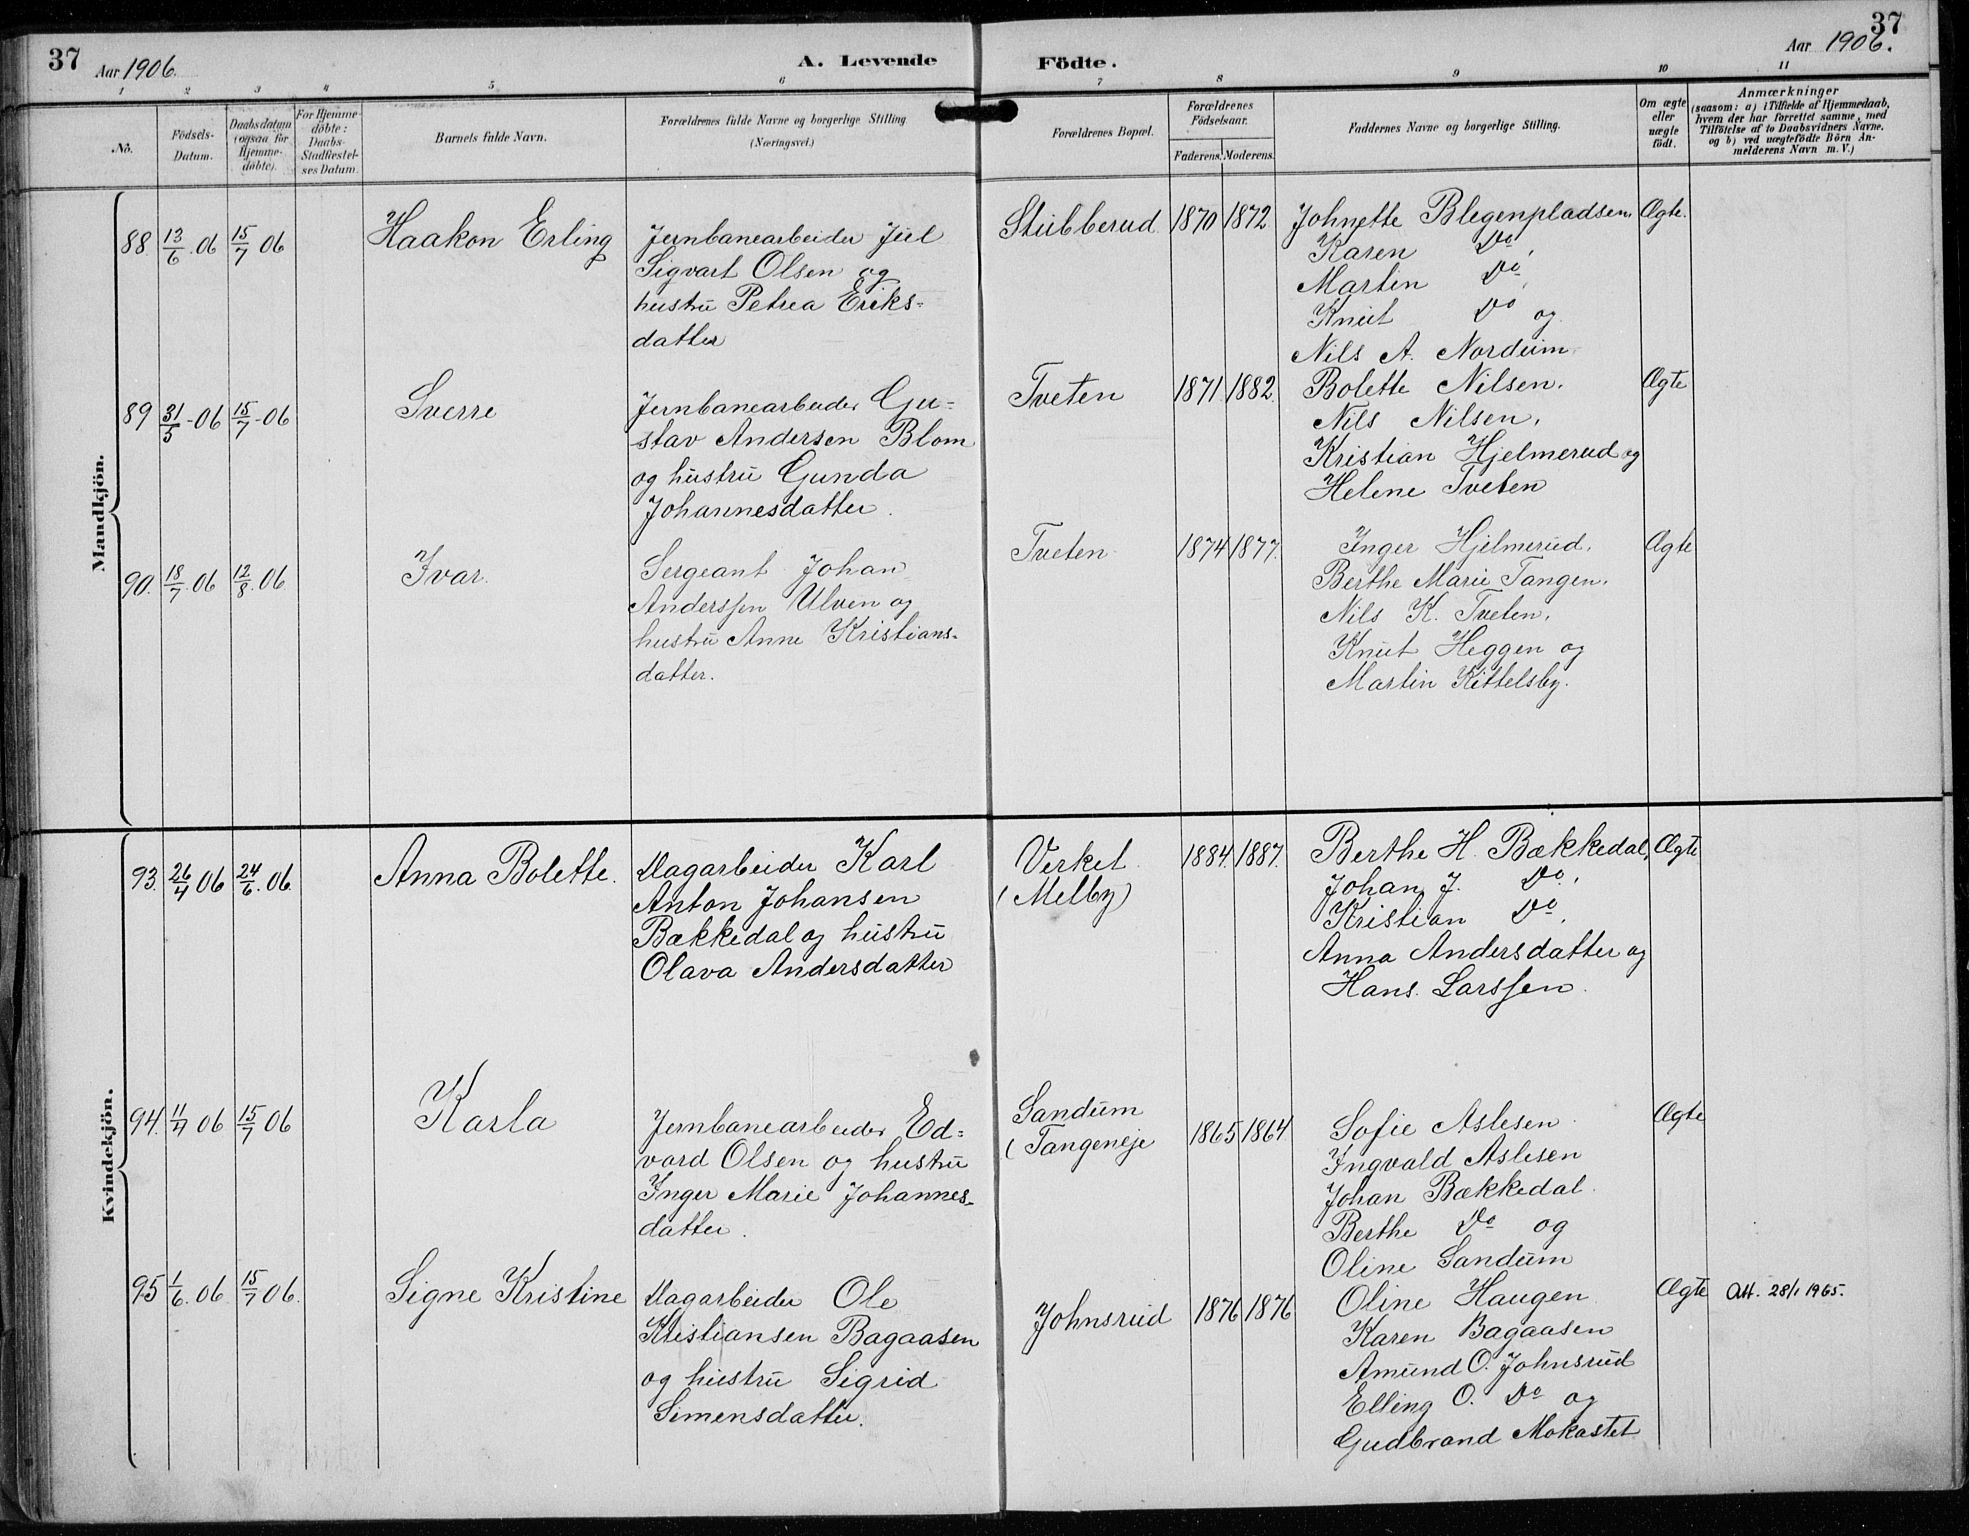 37
Aar 1906.
A. Levende
Födte.
Aar 1906.
37
1 2 3 4 5 6 7 8 9 10 11
No.
Födsels-
Datum.
Daabsdatum
(ogsaa for
Hjemme-
döbte).
For Hjemme-
döbte:
Daabs-
Stadfæstel-
ses Datum.
Barnets fulde Navn.
Forældrenes fulde Navne og borgerlige Stilling
(Næringsvei.)
Forældrenes Bopæl.
Forældrenes
Födselsaar.
Faderens. Moderens.
Faddernes Navne og borgerlige Stilling.
Om ægte
eller
uægte
födt.
Anmærkninger
(saasom: a) i Tilfælde af Hjemmedaab,
hvem der har forrettet samme, med
Tilföielse af to Daabsvidners Navne.
og b) ved uægtefödte Börn An-
melderens Navn m. V.)
Mandkjön.
88 13/6 .06 15/7 06 Haakon Erling
Jernbanearbeider Juel
Sigvart Olsen og
hustru Petrea Eriks-
datter
Stubberud 1870 1872
Johnette Blegenpladsen
Karen Do,
Martin Do,
Knut Do og
Nils A. Nordum
Ægte.
89 31/5 -06 15/7 -06 Sverre
Jernbanearbeider Gu-
stav Andersen Blom
og hustru Gunda
Johannesdatter.
Tveten 1871 1882.
Bolette Nilsen.
Nils Nilsen.
Kristian Hjelmerud og
Helene Tveten
Ægte
90. 18/7 .06 12/8 .06 Ivar.
Sergeant Johan
Anderssen Ulven og
hustru Anne Kristians-
datter.
Tveten 1874 1877.
Inger Hjelmerud.
Berthe Marie Tangen.
Nils K. Tveten.
Knut Heggen og
Martin Kittelsby.
Ægte
Kvindekjön.
93. 26/4 06 24/6 .06. Anna Bolette.
Dagarbeider Karl
Anton Johansen
Bækkedal og hustru
Olava Andersdatter
Verket
(Melby)
1884. 1887.
Berthe H. Bækkedal,
Johan J. Do.,
Kristian Do.
Anna Andersdatter og
Hans Larssen.
Ægte
94. 11/4 06 15/7 06 Karla
Jernbanearbeider Ed-
vard Olsen og hustru
Inger Marie Johannes-
datter.
Sandum
(Tangeneje
1865 1864
Sofie Aslesen
Ingvald Aslesen
Johan Bækkedal
Berthe Do og
Oline Sandum
Ægte
95 1/6 .06 15/7 06. Signe Kristine
Dagarbeider Ole
Kristiansen Bagaasen
og hustru Sigrid
Simensdatter.
Johnsrud 1876 1876
Oline Haugen
Karen Bagaasen
Amund O. Johnsrud
Elling O. Do og
Gudbrand Mokastet
Ægte Att. 28/1 1965.